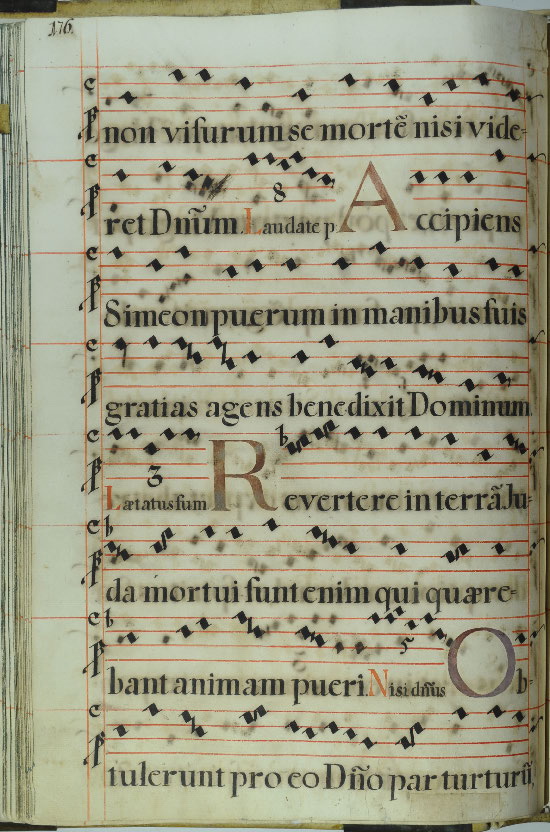 176.
non visurum se mortẽ nisi vide-
ret Dñum. Laudate p. 8 Accipiens
Simeon puerum in manibus suis
gratias agens benedixit Dominum.
Lætatus sum 3 Revertere in terrã Ju-
da mortui sunt enim qui quære-
bant animam pueri. Nisi dñus 5 Ob-
tulerunt pro eo Dño par turturũ